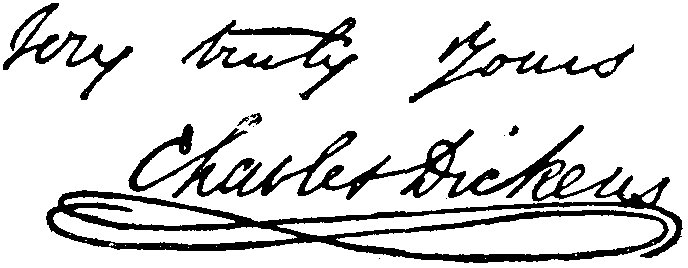 Very truly Yours
Charles Dickens